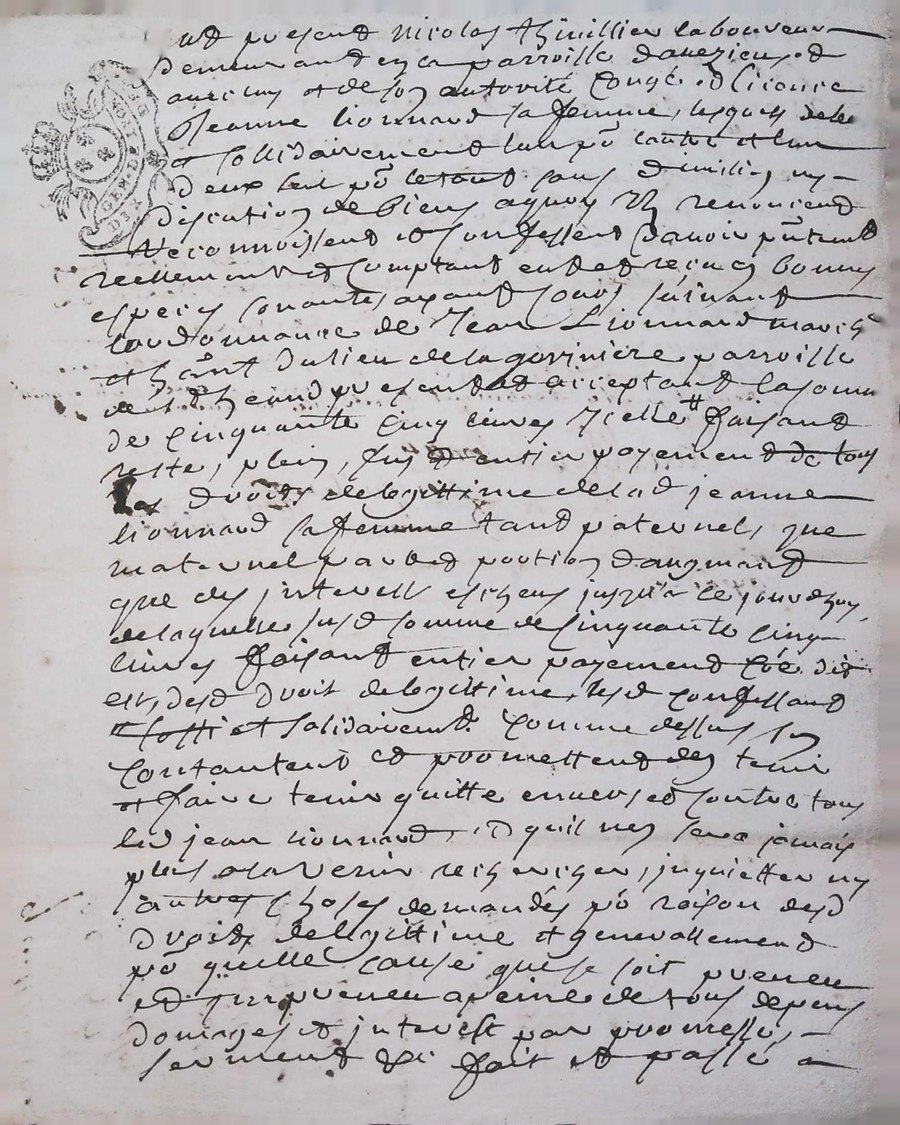 GEN DE LION
DEX DE
est present nicolas thuillier laboureur
demeurant en la parroisse davezieu et
avec luy et de son autorité congé et licence
Jeanne lionnard sa femme, lesquels de leur
et sollidairement lun po lautre et lun
deux seul po le tout sans division ny
discution de biens a quoy ils renoncent
Reconnoissent et confessent davoir pntement
reellement et comptant eu et receu en bonnes
especes sonantes ayant cours suivant
lordonnance de Jean Lionnard march
et St Julien de la
present et acceptant la somme
de cinquante cinq livres Icelle faisant
reste, plein, fins et entier payement de tous
Les droits de legittime de lad jeanne
lionnard sa femme tant paternels, que
maternel part et portion daugmant
que des interest escheus jusqua ce jourdhuy,
de laquelle susd somme de Cinquante Cinq
livres faisant entier payement co(e) dit
est, desd droit de legittime, lesd confessant
et solidairemt. Comme dessus sen
Contantent et promettent den tenir
et faire tenir quitte envers et contre tous
led jean lionnard, et quil nen sera jamais
plus a laVenir rechercher, inquietter ny
autres choses demandés po raison desd
droits de legittime et generallement
po quelle cause que se soit
a peine de tous depens
domages et interest par promesse,
serment &c fait et passé a